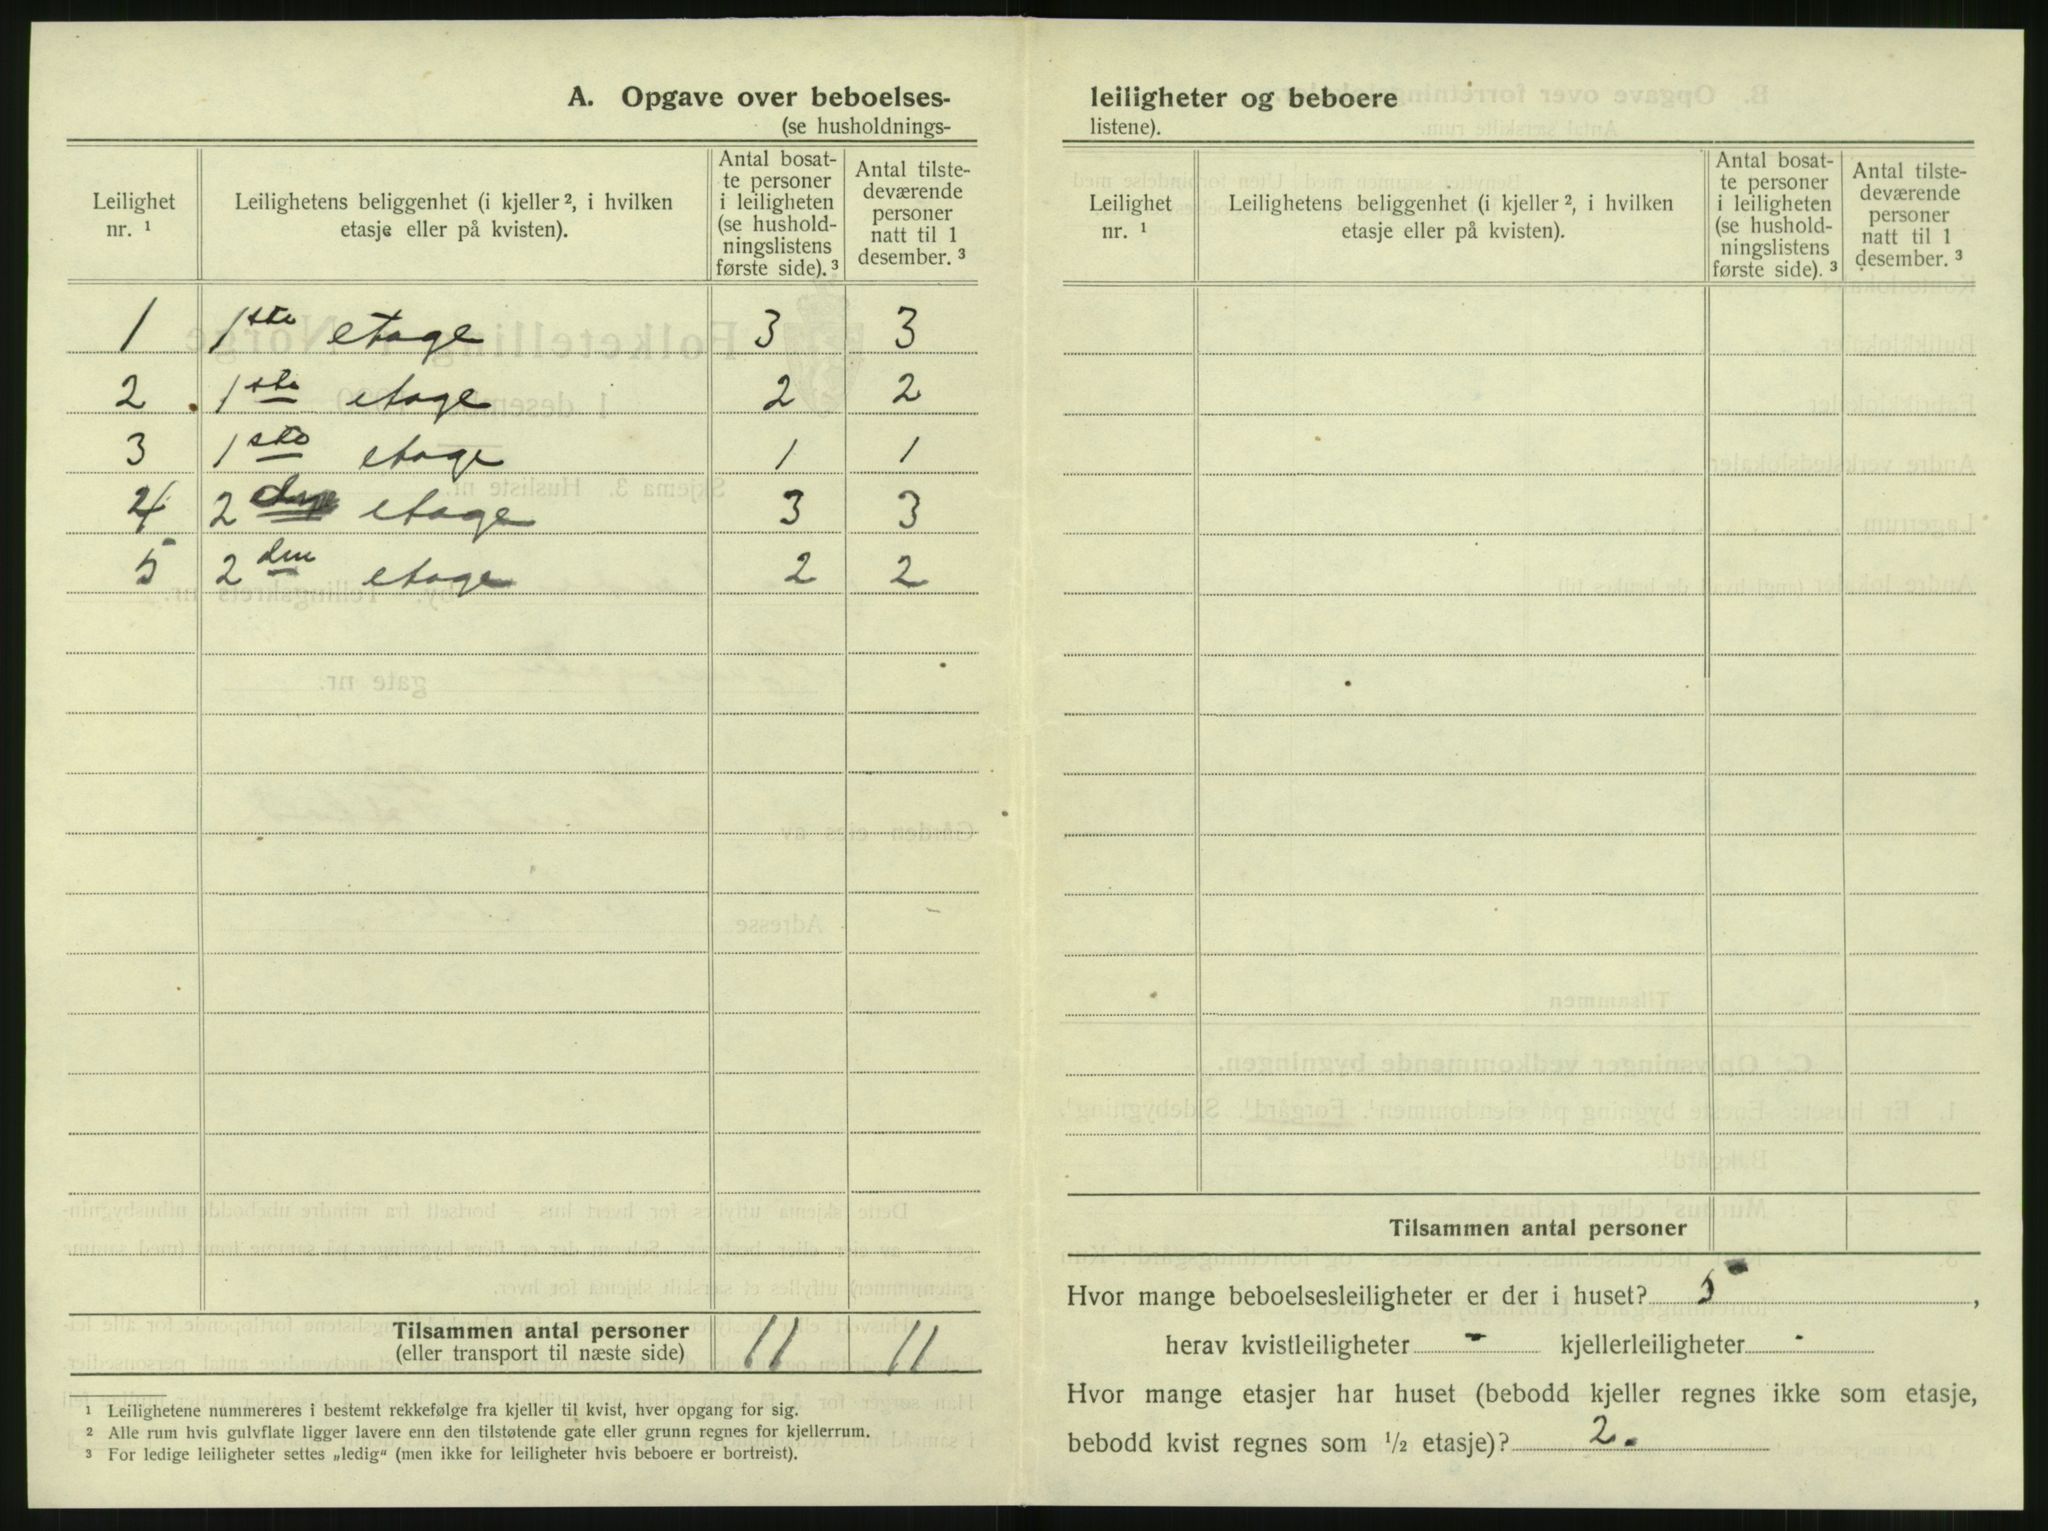 A. Opgave over beboelses-
(se husholdnings-
Leilighet
nr. ¹
Leilighetens beliggenhet (i kjeller ², i hvilken
etasje eller på kvisten).
Antal bosat-
te personer
i leiligheten
(se hushold-
ningslistens
første side). ³
Antal tilste-
deværende
personer
natt til 1
desember. ³
1 1ste etage 3 3
2 1ste etage 2 2
3 1ste etage 1 1
4 2 etage 3 3
5 2den etage 2 2
Tilsammen antal personer
(eller transport til næste side)
11 11
¹ Leilighetene nummereres i bestemt rekkefølge fra kjeller til kvist, hver opgang for sig.
² Alle rum hvis gulvflate ligger lavere enn den tilstøtende gate eller grunn regnes for kjellerrum.
³ For ledige leiligheter settes „ledig" (men ikke for leiligheter hvis beboere er bortreist).
leiligheter og beboere
listene).
Leilighet
nr. ¹
Leilighetens beliggenhet (i kjeller ², i hvilken
etasje eller på kvisten).
Antal bosat-
te personer
i leiligheten
(se hushold-
ningslistens
første side). ³
Antal tilste-
deværende
personer
natt til 1
desember. ³
Tilsammen antal personer
Hvor mange beboelsesleiligheter er der i huset? 5,
herav kvistleiligheter - kjellerleiligheter -
Hvor mange etasjer har huset (bebodd kjeller regnes ikke som etasje,
bebodd kvist regnes som ½ etasje)? 2.